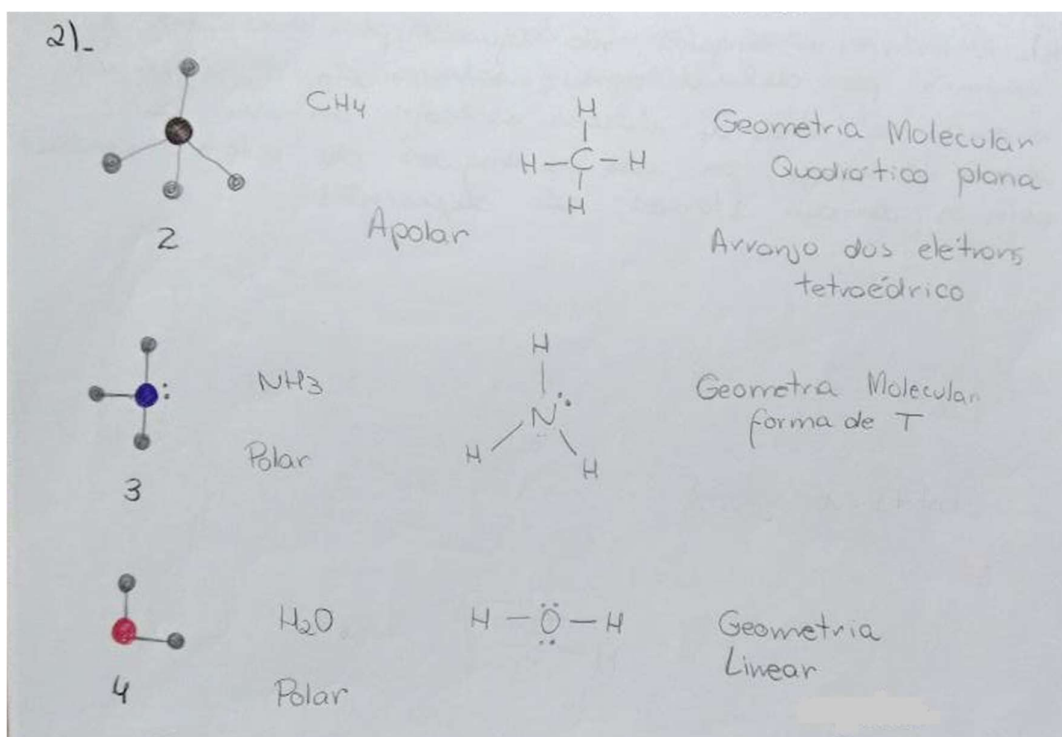 2)_
CH4
H
H–C–H
H
Geometria Molecular
Quadrático plana
2
Apolar
Arranjo dos elétrons
tetraédrico
NH3
H
N
H H
Geometria Molecular
forma de T
3
Polar
H2O
H – O – H
Geometria
Linear
4
Polar